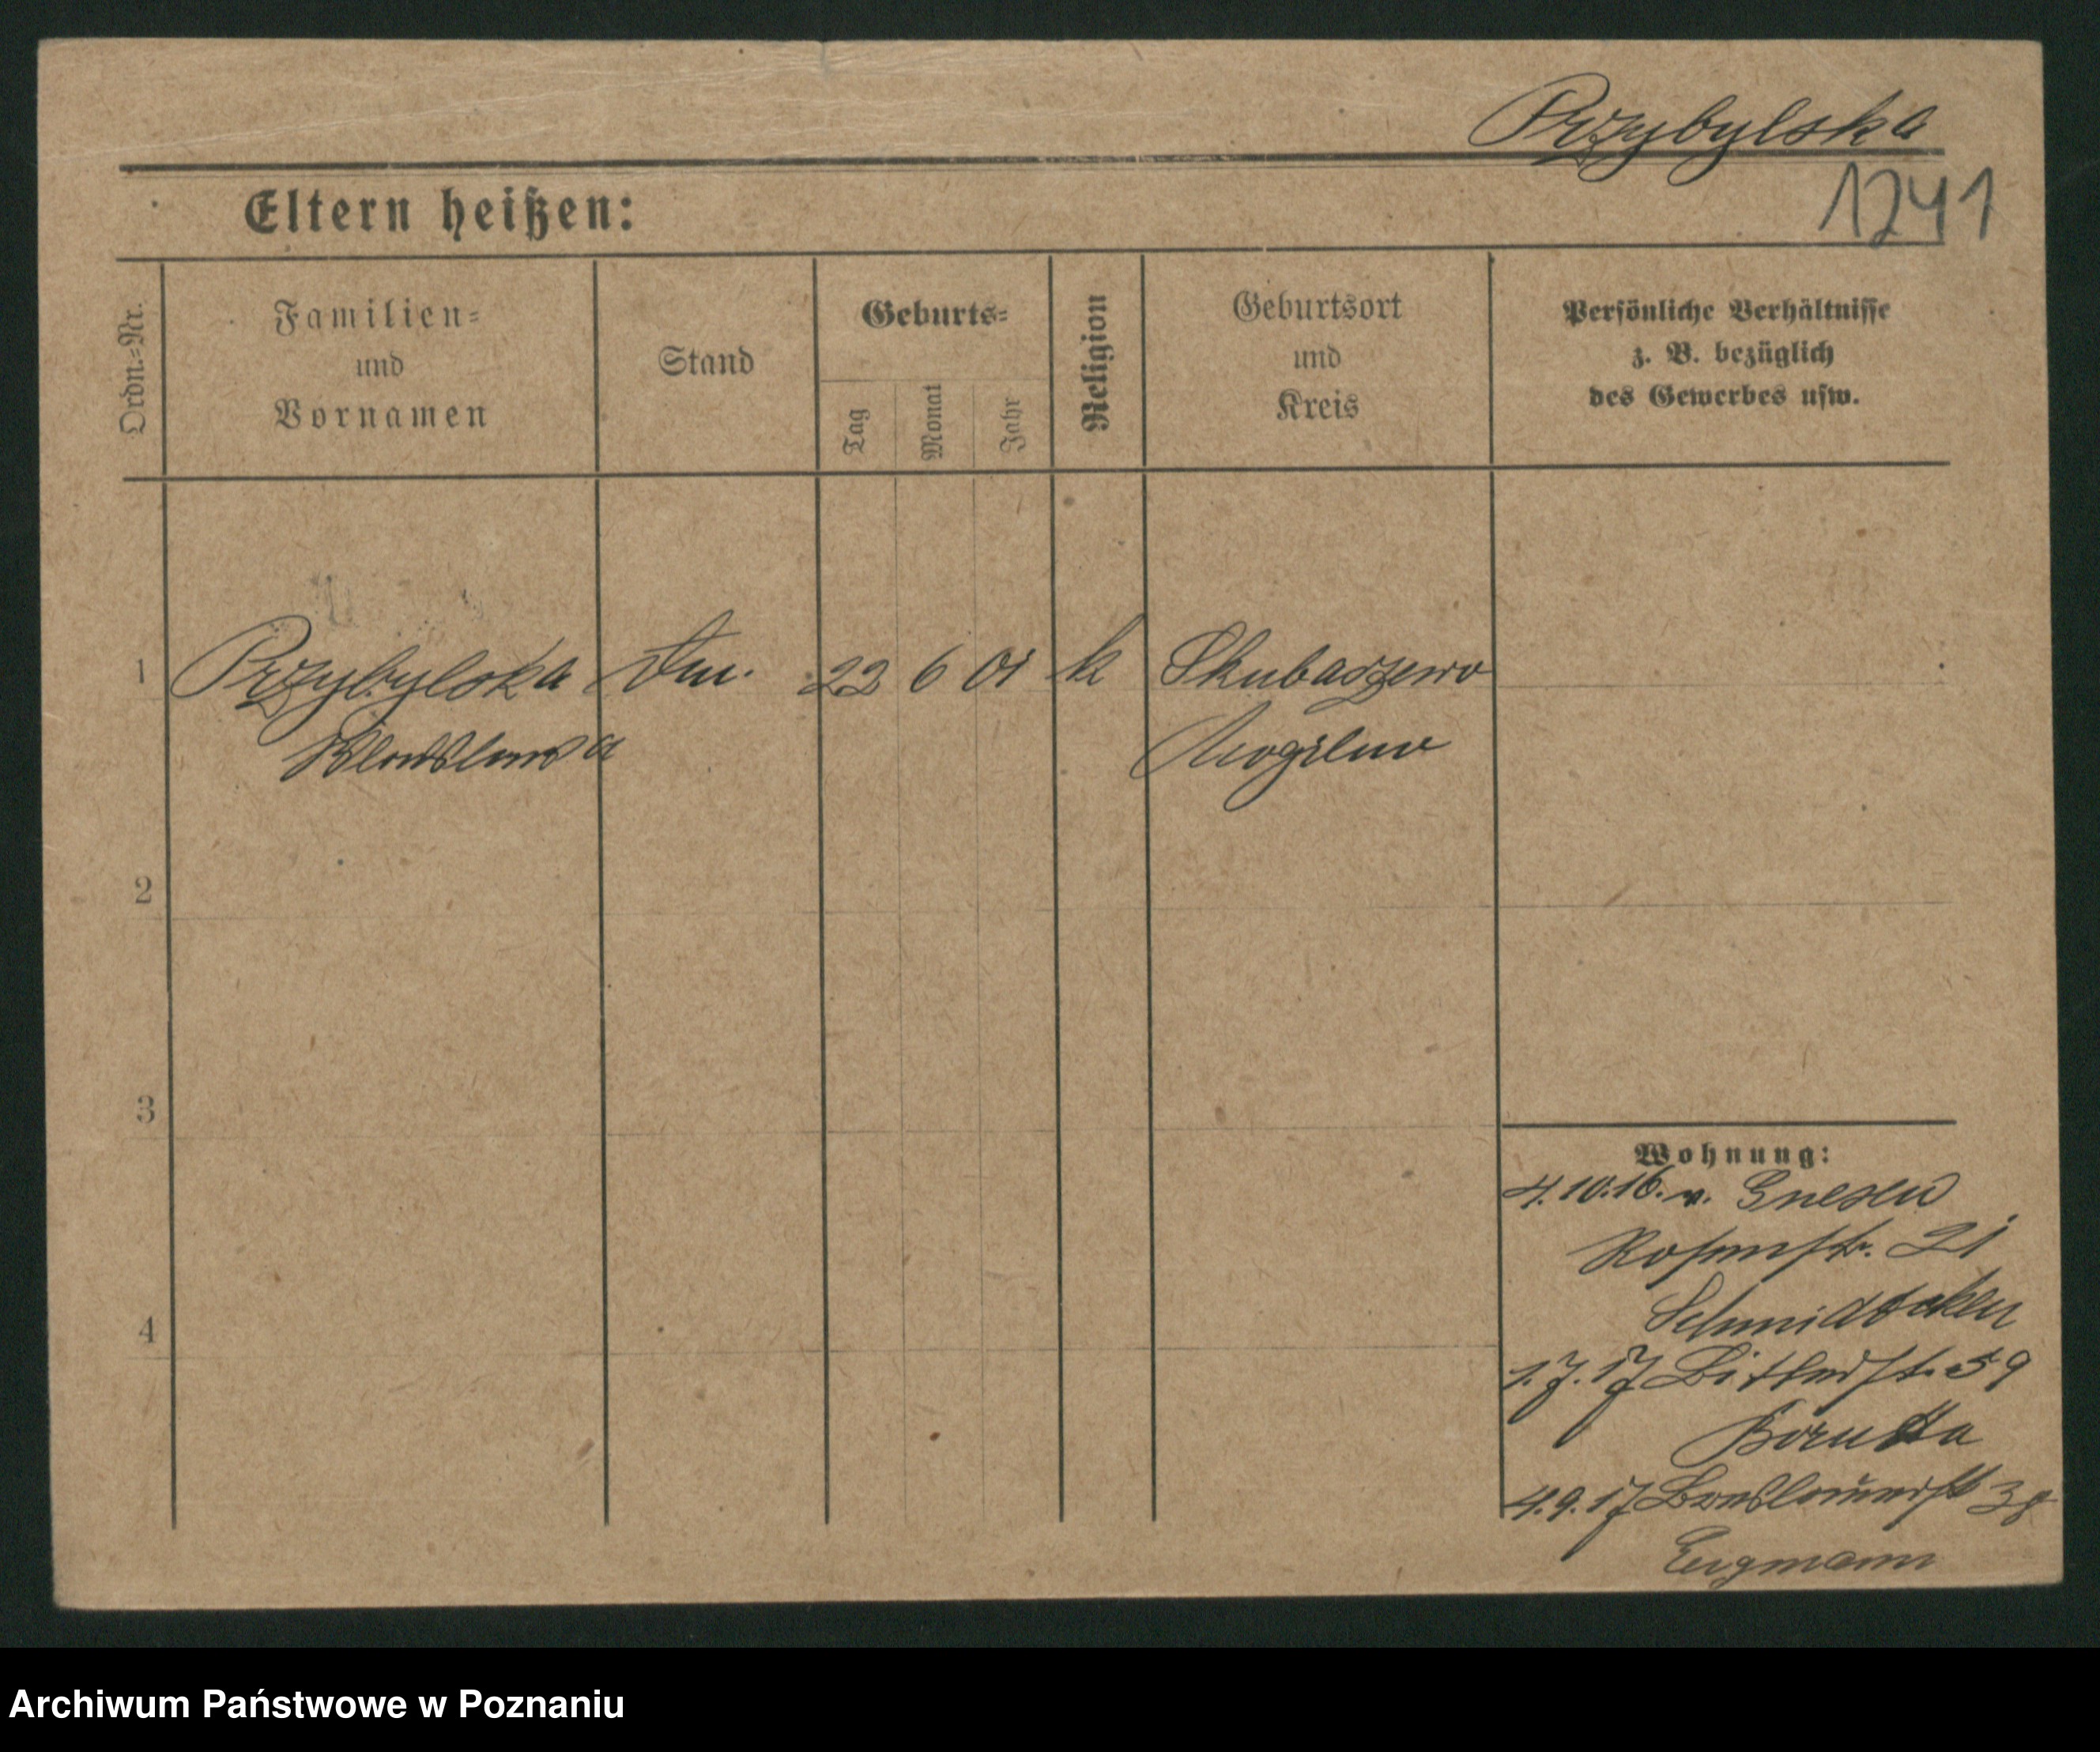 Przybylska
1241
Eltern heißen:
Ordn.=Nr.
Familien=
und
Vornamen
Stand
Geburts=
Tag
Monat
Jahr
Religion
Geburtsort
und
Kreis
Persönliche Verhältnisse
z. B. bezüglich
des Gewerbes usw.
1 Przybylska 22 6 01 k Skubarzewo
Wladislawa Mogilno
2
3
4
Wohnung:
4.10.16. v. Gnesen
Rosenstr. 21
1.7.17 59
Borutta
4.9.17 Breslauerstr
Engmann
Archiwum Państwowe w Poznaniu